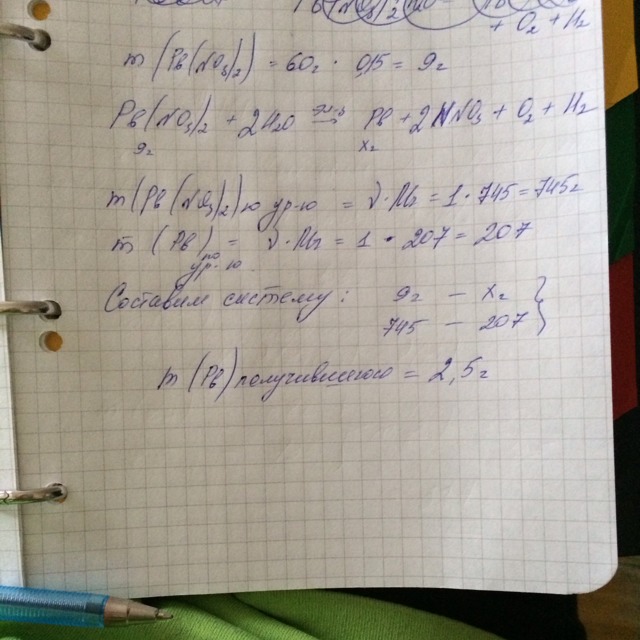 + O₂ + H₂
m (Pb(NO₃)₂) = 60г · 0,15 = 9г
Pb(NO₃)₂ + 2H₂O эл-з → Pb + 2HNO₃ + O₂ + H₂
9г xг
m(Pb(NO₃)₂)по ур-ю = ν·Mr = 1 · 745 = 745г
m (Pb) по ур-ю = ν·Mr = 1 · 207 = 207
Составим систему: 9г — xг
745 — 207
m (Pb) получившегося = 2,5г